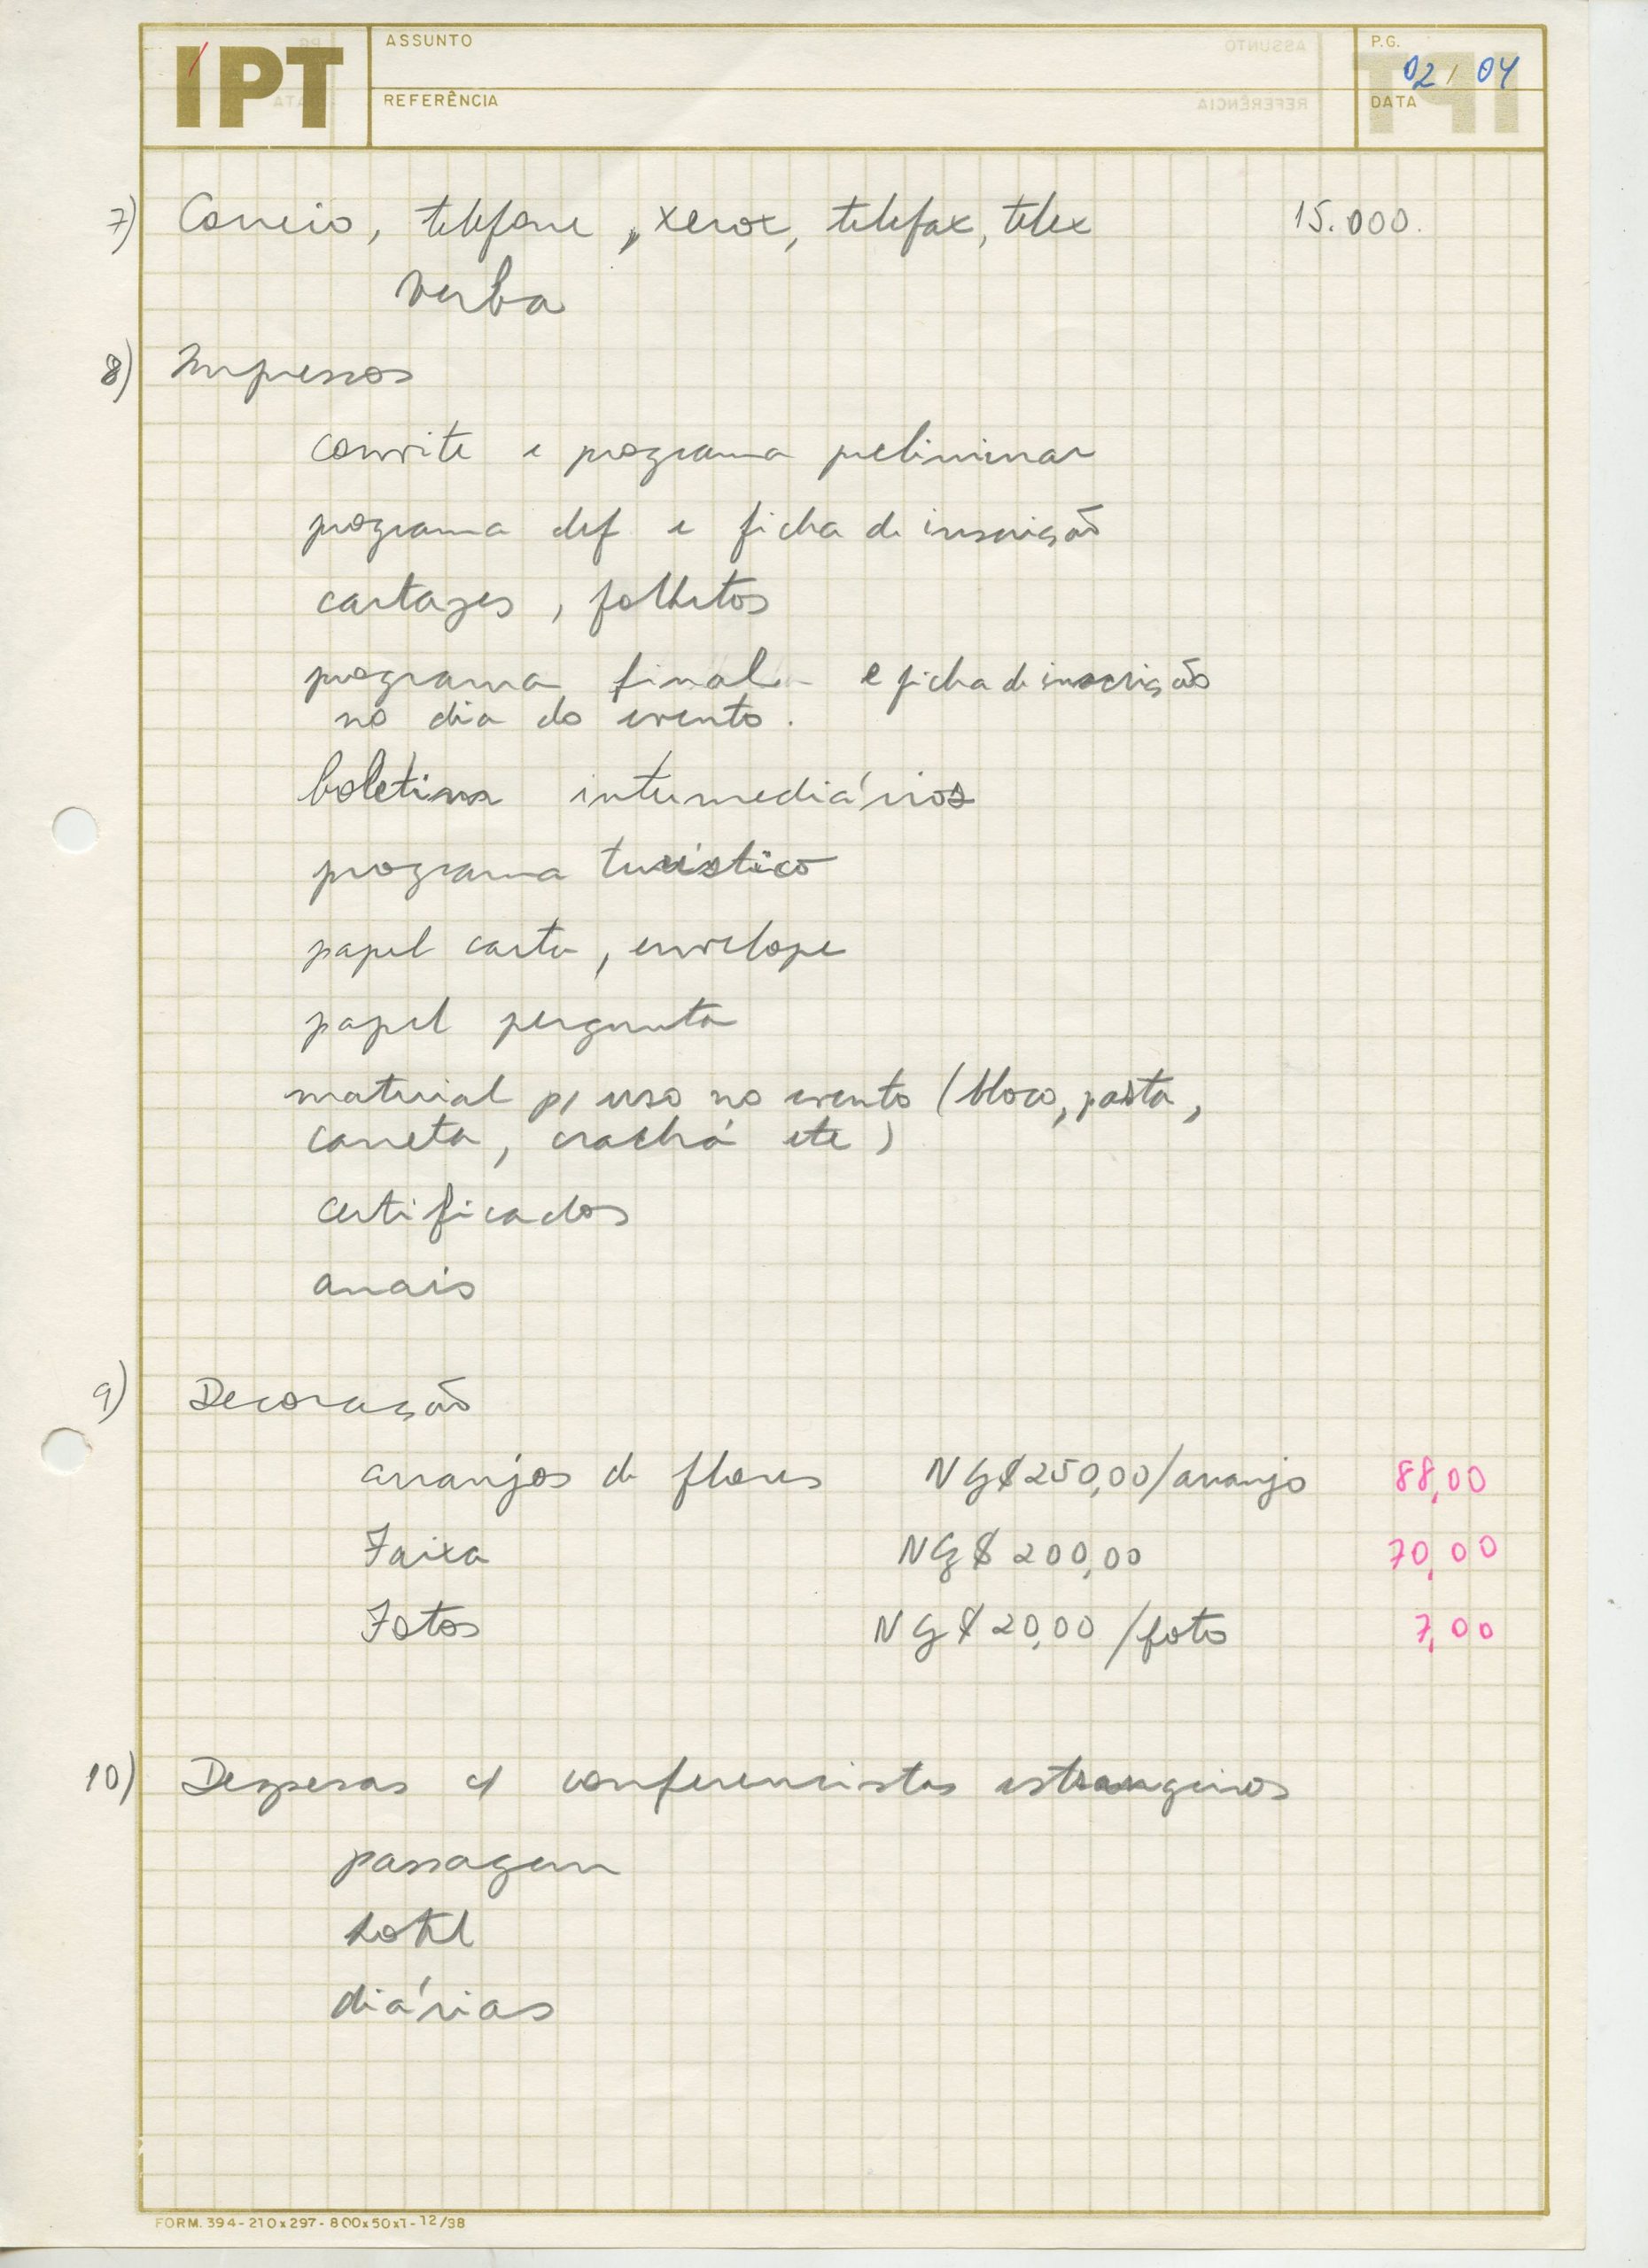 IPT
ASSUNTO
REFERÊNCIA
P.G.
02 / 04
DATA
7) Correio, telefone, xerox, telefax, telex 15.000.
verba
8) Impressos
convite e programa preliminar
programa def e ficha de inscrição
cartazes, folhetos
programa final e ficha de inscrição
no dia do evento.
boletins intermediários
programa turístico
papel carta, envelope
papel pergunta
material p/ uso no evento (bloco, pasta,
caneta, crachá etc)
certificados
anais
9) Decoração
arranjos de flores NCz$250,00/arranjo 88,00
Faixa NCz$ 200,00 70,00
Fotos NCz$ 20,00 /foto 7,00
10) Despesas c/ conferencistas estrangeiros
passagem
hotel
diárias
FORM. 394-210x297-800x50x1-12/38